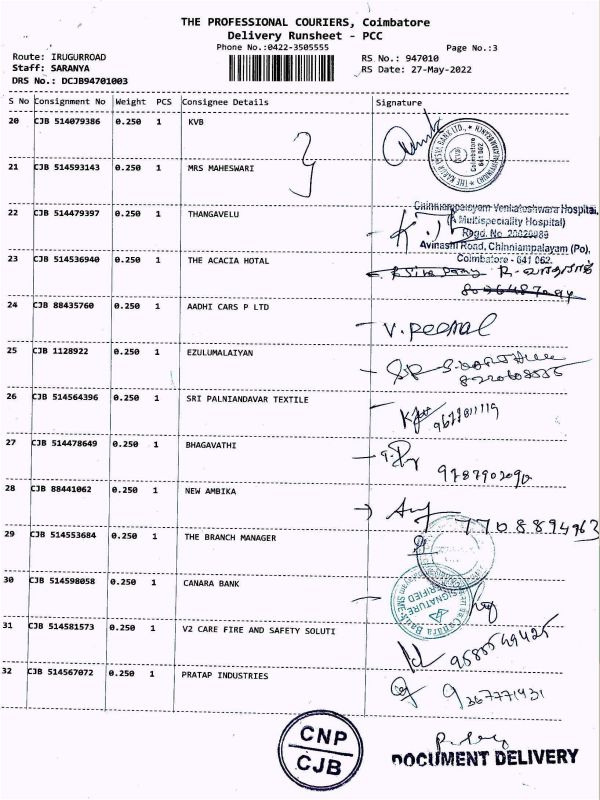 THE PROFESSIONAL COURIERS, Coimbatore
Delivery Runsheet - PCC
Phone No.:0422-3505555
Page No.:3
Route: IRUGURROAD
Staff: SARANYA
DRS No.: DCJB94701003
RS No.: 947010
RS Date: 27-May-2022
S No Consignment No Weight PCS Consignee Details Signature
20 CJB 514079386 0.250 1 KVB
THE KARUR VYSYA BANK LTD., Coimbatore 641 062.
21 CJB 514593143 0.250 1 MRS MAHESWARI
22 CJB 514479397 0.250 1 THANGAVELU
Chinniampalayam Venkateshwara Hospital,
(A Multispeciality Hospital)
Avinashi Road, Chinniampalayam (Po),
Coimbatore - 641 062.
23 CJB 514536940 0.250 1 THE ACACIA HOTAL
24 CJB 88435760 0.250 1 AADHI CARS P LTD
25 CJB 1128922 0.250 1 EZULUMALAIYAN
26 CJB 514564396 0.250 1 SRI PALNIANDAVAR TEXTILE
9677811119
27 CJB 514478649 0.250 1 BHAGAVATHI
9787902090
28 CJB 88441062 0.250 1 NEW AMBIKA
7708894963
29 CJB 514553684 0.250 1 THE BRANCH MANAGER
30 CJB 514598058 0.250 1 CANARA BANK
SIGNATURE VERIFIED
Canara Bank
31 CJB 514581573 0.250 1 V2 CARE FIRE AND SAFETY SOLUTI
32 CJB 514567072 0.250 1 PRATAP INDUSTRIES
9367771431
CNP
CJB
DOCUMENT DELIVERY